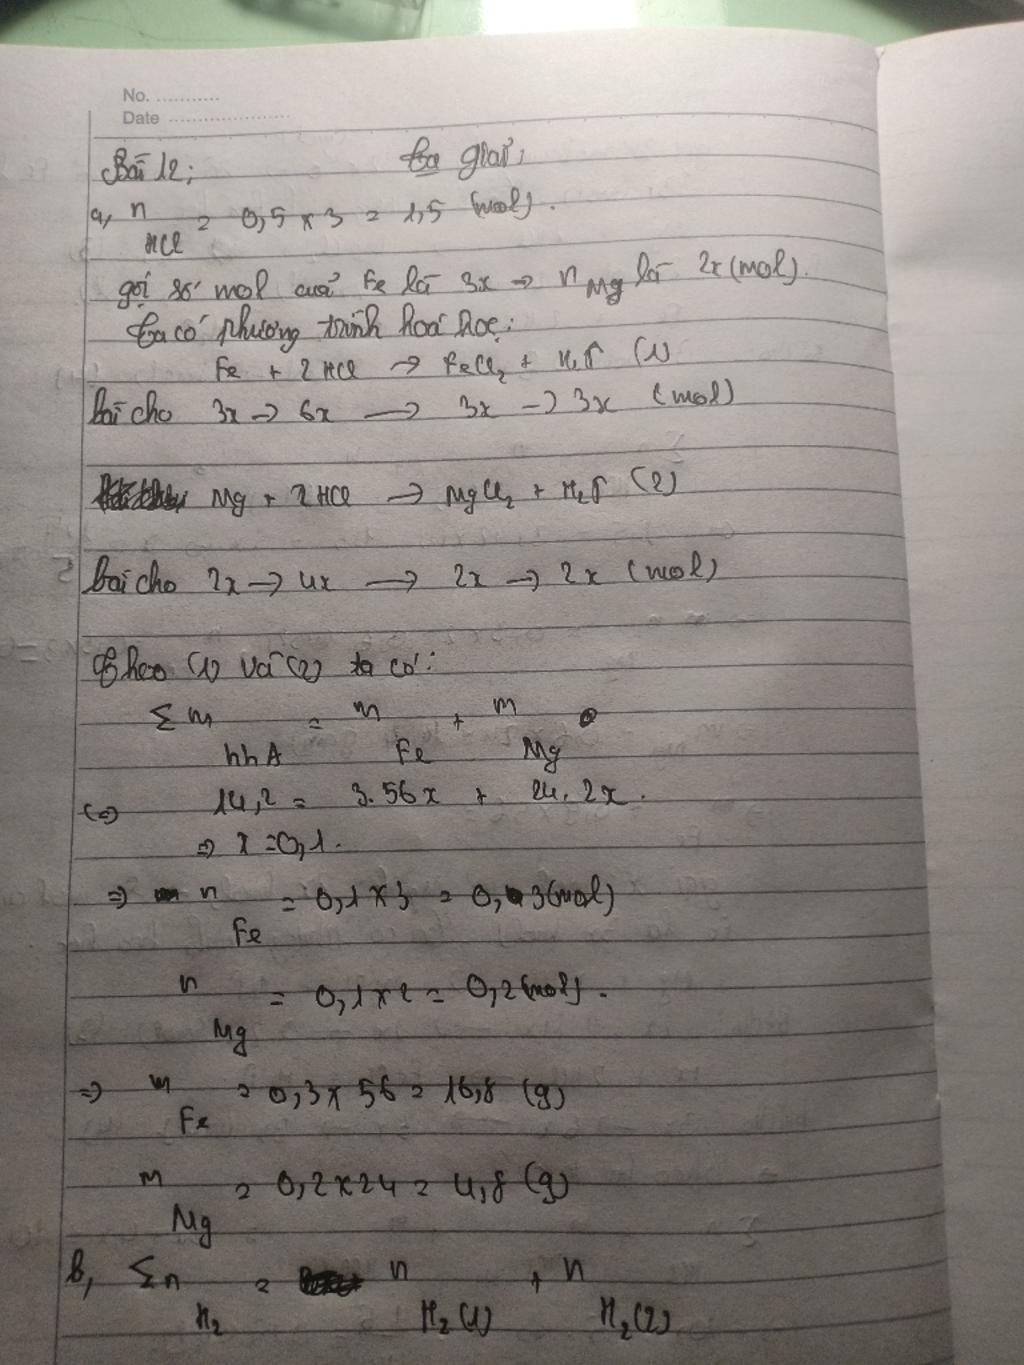 No. ...........
Date ......................
Bài 12; Bài giải;
a, n HCl = 0,5 x 3 = 1,5 (mol).
gọi số mol của Fe là 3x → n Mg là 2x (mol).
Ta có phương trình hoá học:
Fe + 2 HCl → FeCl₂ + H₂↑ (1)
bài cho 3x → 6x → 3x → 3x (mol)
Mg + 2HCl → MgCl₂ + H₂↑ (2)
bài cho 2x → 4x → 2x → 2x (mol)
Theo (1) và (2) ta có:
Σ m hh A = m Fe + m Mg
<=> 14,2 = 3.56x + 24.2x.
=> x = 0,1.
=> n Fe = 0,1 x 3 = 0,3 (mol)
n Mg = 0,1 x 2 = 0,2 (mol).
=> m Fe = 0,3 x 56 = 16,8 (g)
m Mg = 0,2 x 24 = 4,8 (g)
b, Σn H₂ = n H₂(1) + n H₂(2)